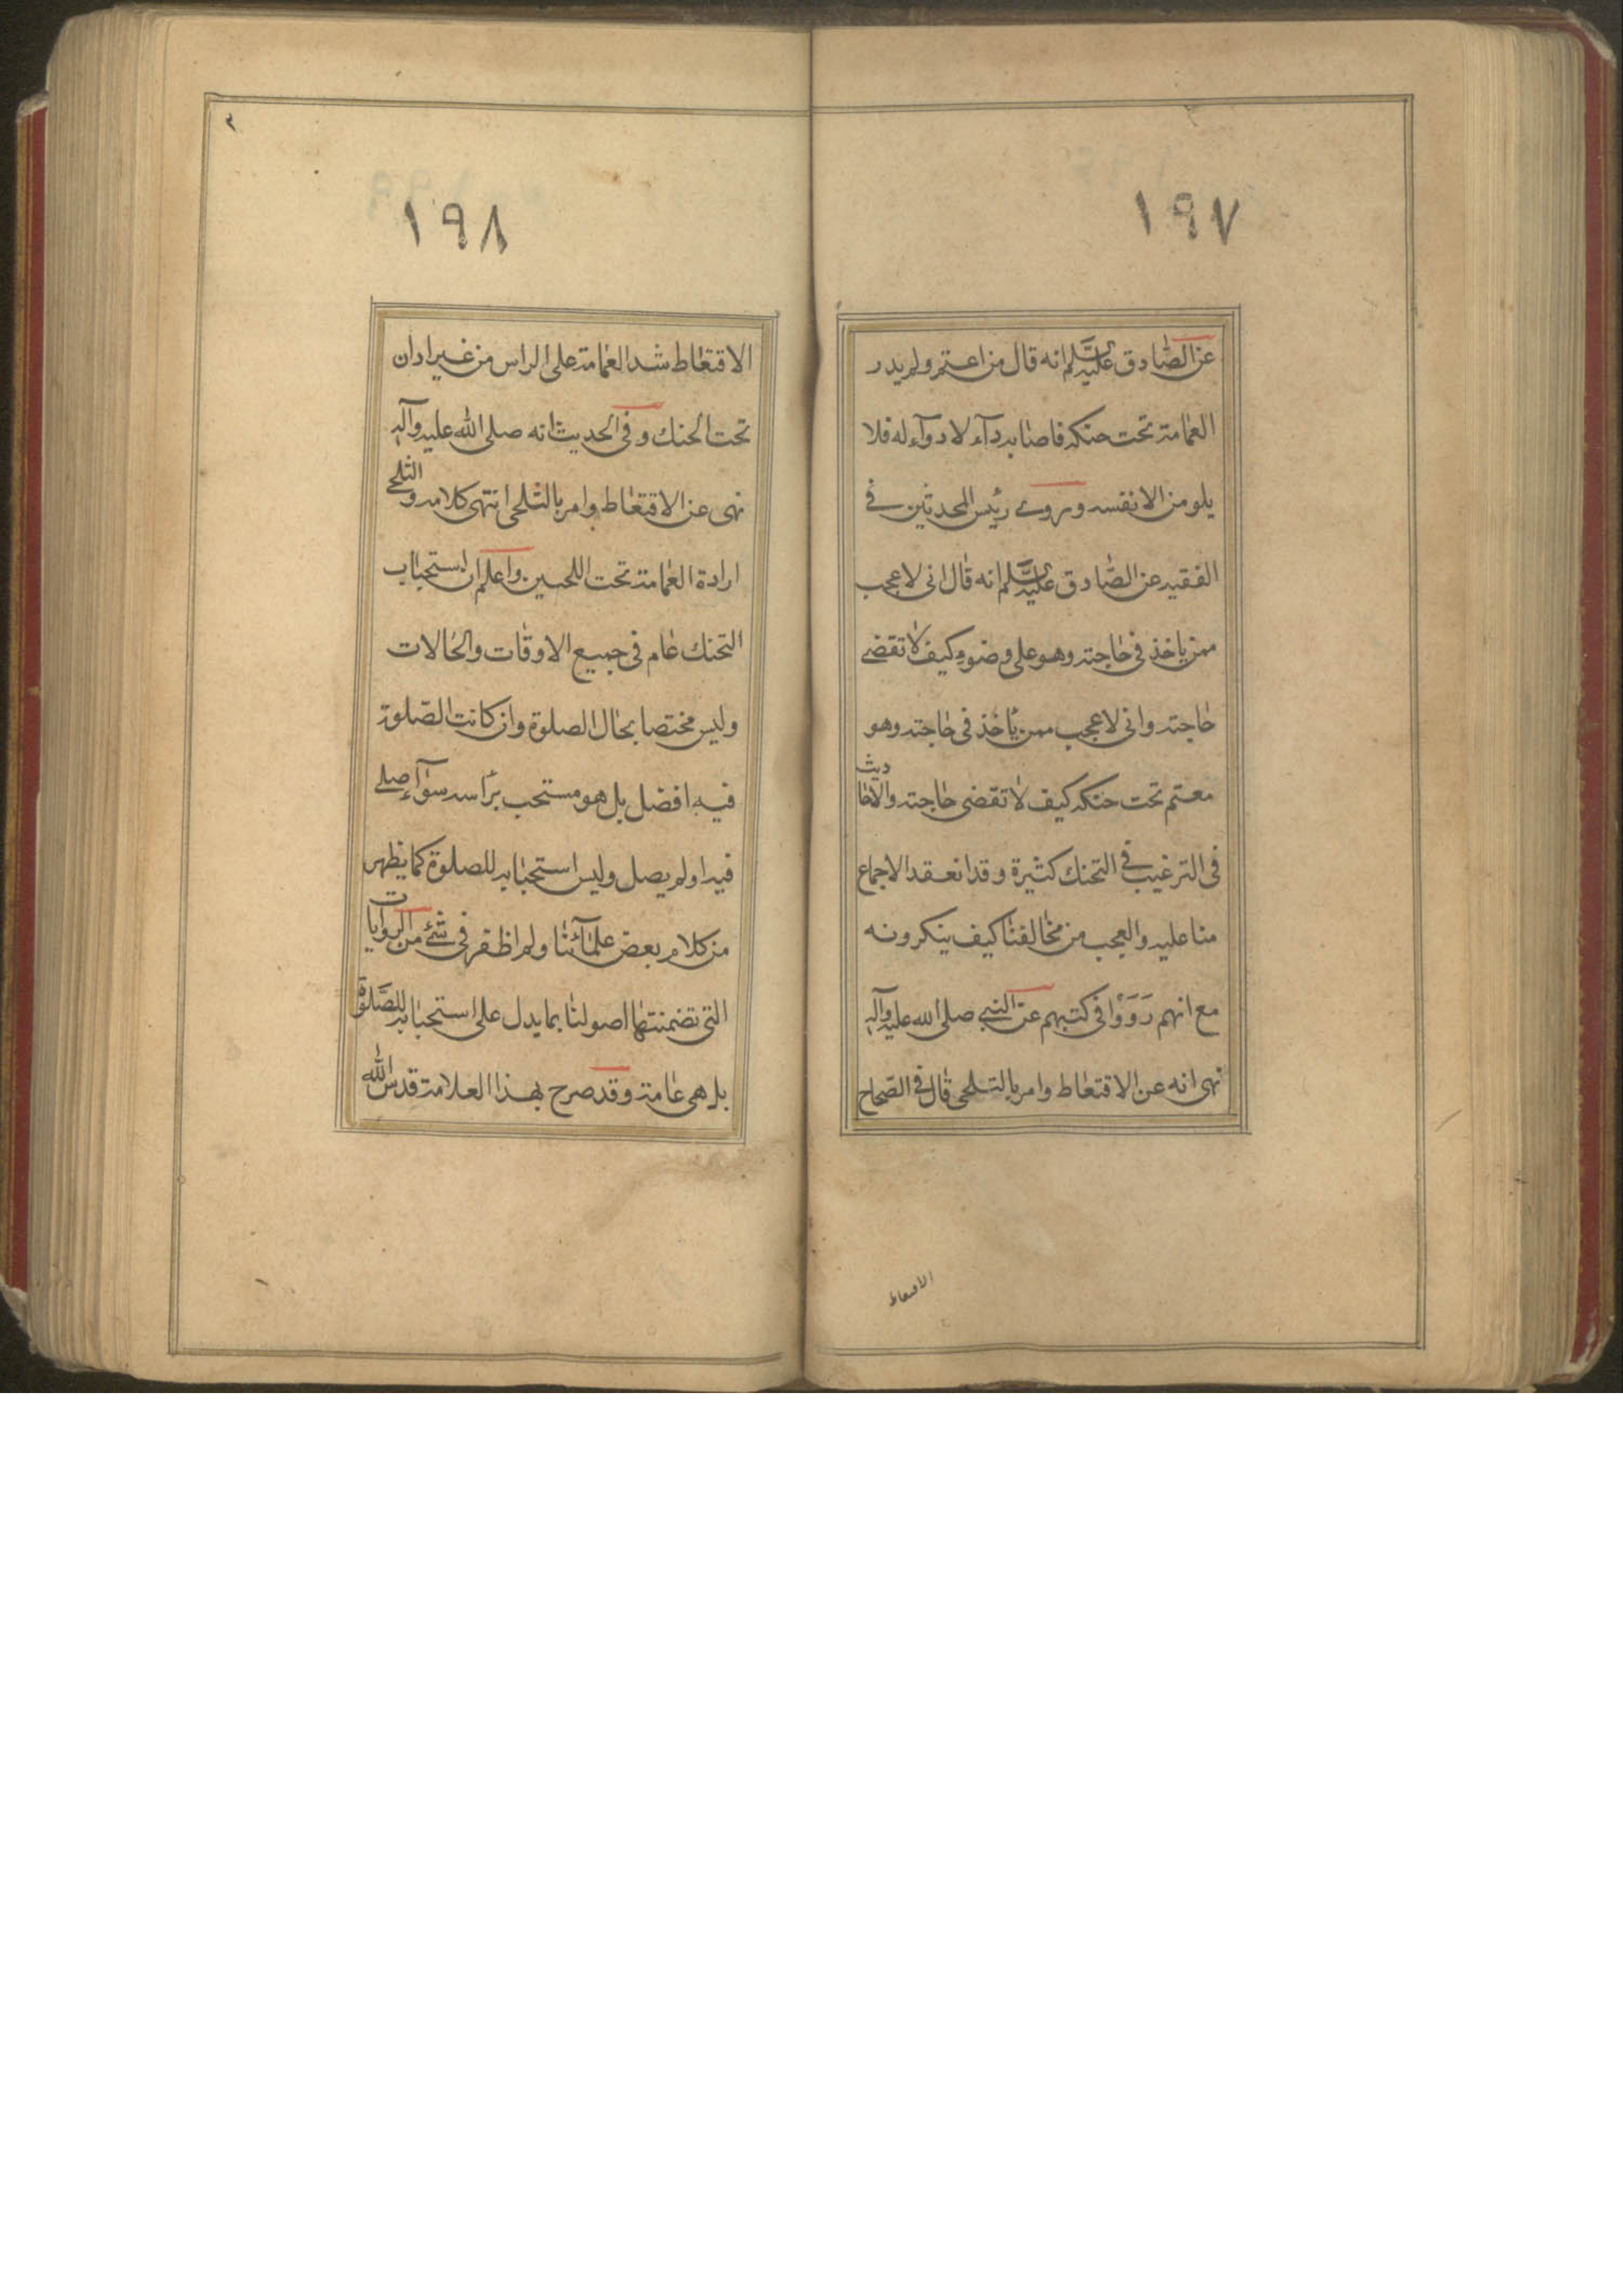 ١٩٧
عن الصادق عليه السلم انه قال من اعتم ولم يدر
العمامة تحت حنكه فاصابه دآء لا دوآء له فلا
يلومن الا نفسه وروى رئيس المحدثين في
الفقيه عن الصادق عليه السلم انه قال انى لاعجب
ممن ياخذ فى حاجته وهو على وضوء كيف لا تقضى
حاجته وانى لاعجب ممن ياخذ فى حاجته وهو
معتم تحت حنكه كيف لا تقضى حاجته والاحاديث
فى الترغيب في التحنك كثيرة وقد انعقد الاجماع
منا عليه والعجب من مخالفنا كيف ينكرونه
مع انهم رَوَوْا فى كتبهم عن النبى صلى الله عليه وآله
نهى انه عن الاقتعاط وامر بالتلحى قال فى الصحاح
الاقتعاط
١٩٨
الاقتعاط شد العمامة على الراس من غير ادان
تحت الحنك وفى الحديث انه صلى الله عليه وآله
نهى عن الاقتعاط وامر بالتلحى انتهى كلامه والتلحى
ارادة العمامة تحت اللحيين واعلم ان استحباب
التحنك عام فى جميع الاوقات والحالات
وليس مختصا بحال الصلوة وان كانت الصلوة
فيه افضل بل هو مستحب براسه سوآء صلى
فيه اولم يصل وليس استحبابه للصلوة كما يظهر
من كلام بعض علمآئنا ولم اظفر فى شئ من الروايات
التى تضمنتها اصولنا بما يدل على استحبابه للصلوة
بل هى عامة وقد صرح بهذا العلامة قدس الله